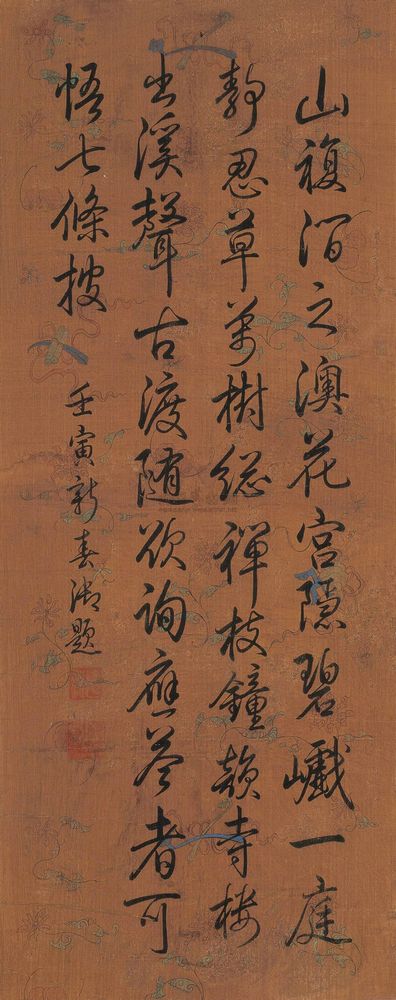 山複澗之澳花宮隱碧巇一庭
靜忍草萬樹總禪枝鐘韻寺樓
出溪聲古渡随欲詢應答者可
悟七條披
壬寅新春御題